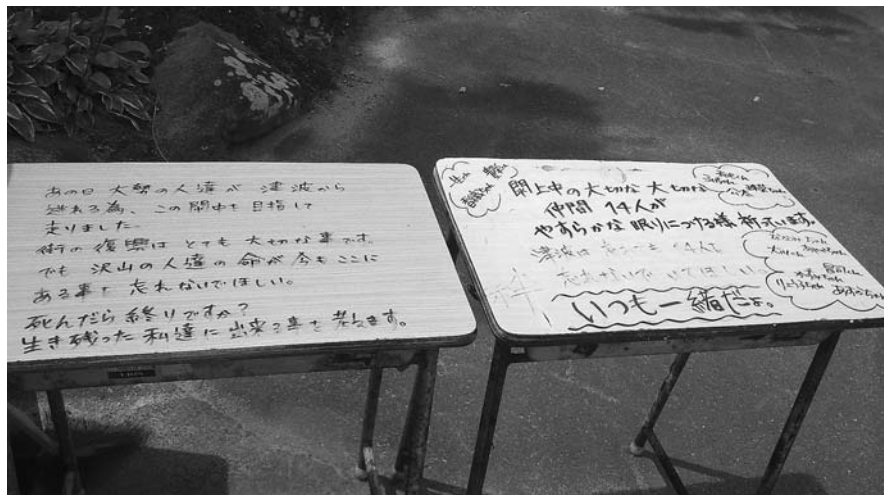 あの日 大勢の人達が 津波から
逃れる為、この閖中を目指して
走りました。
街の復興は とても 大切な事です。
でも 沢山の人達の命が 今も ここに
ある事を 忘れないでほしい。
死んだら 終りですか?
生き残った 私達に 出来る事を 考えます。
閖上中の大切な 大切な
仲間 14人が
やすらかな 眠りにつける様 祈っています。
津波は 14人
忘れないで いてほしい。
いつも一緒だよ。